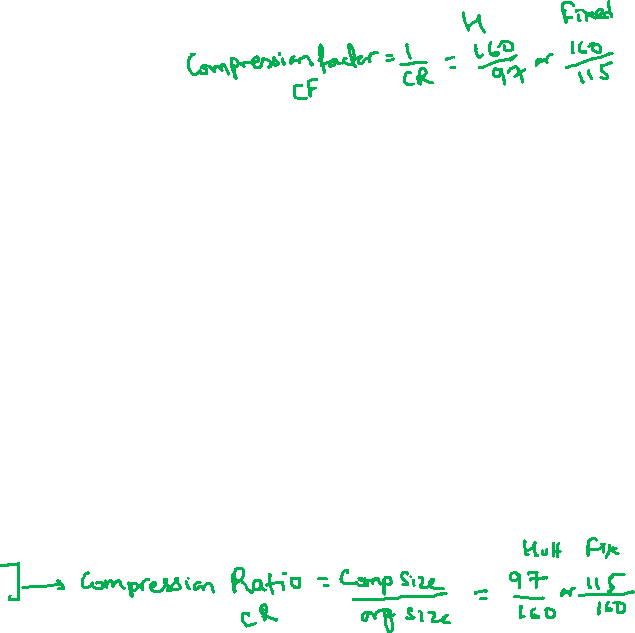 H Fixed
Compression factor = 1/CR = 160/97 or 160/115
CF
Huff Fix
] → Compression Ratio = Comp Size/org size = 97/160 or 115/160
CR